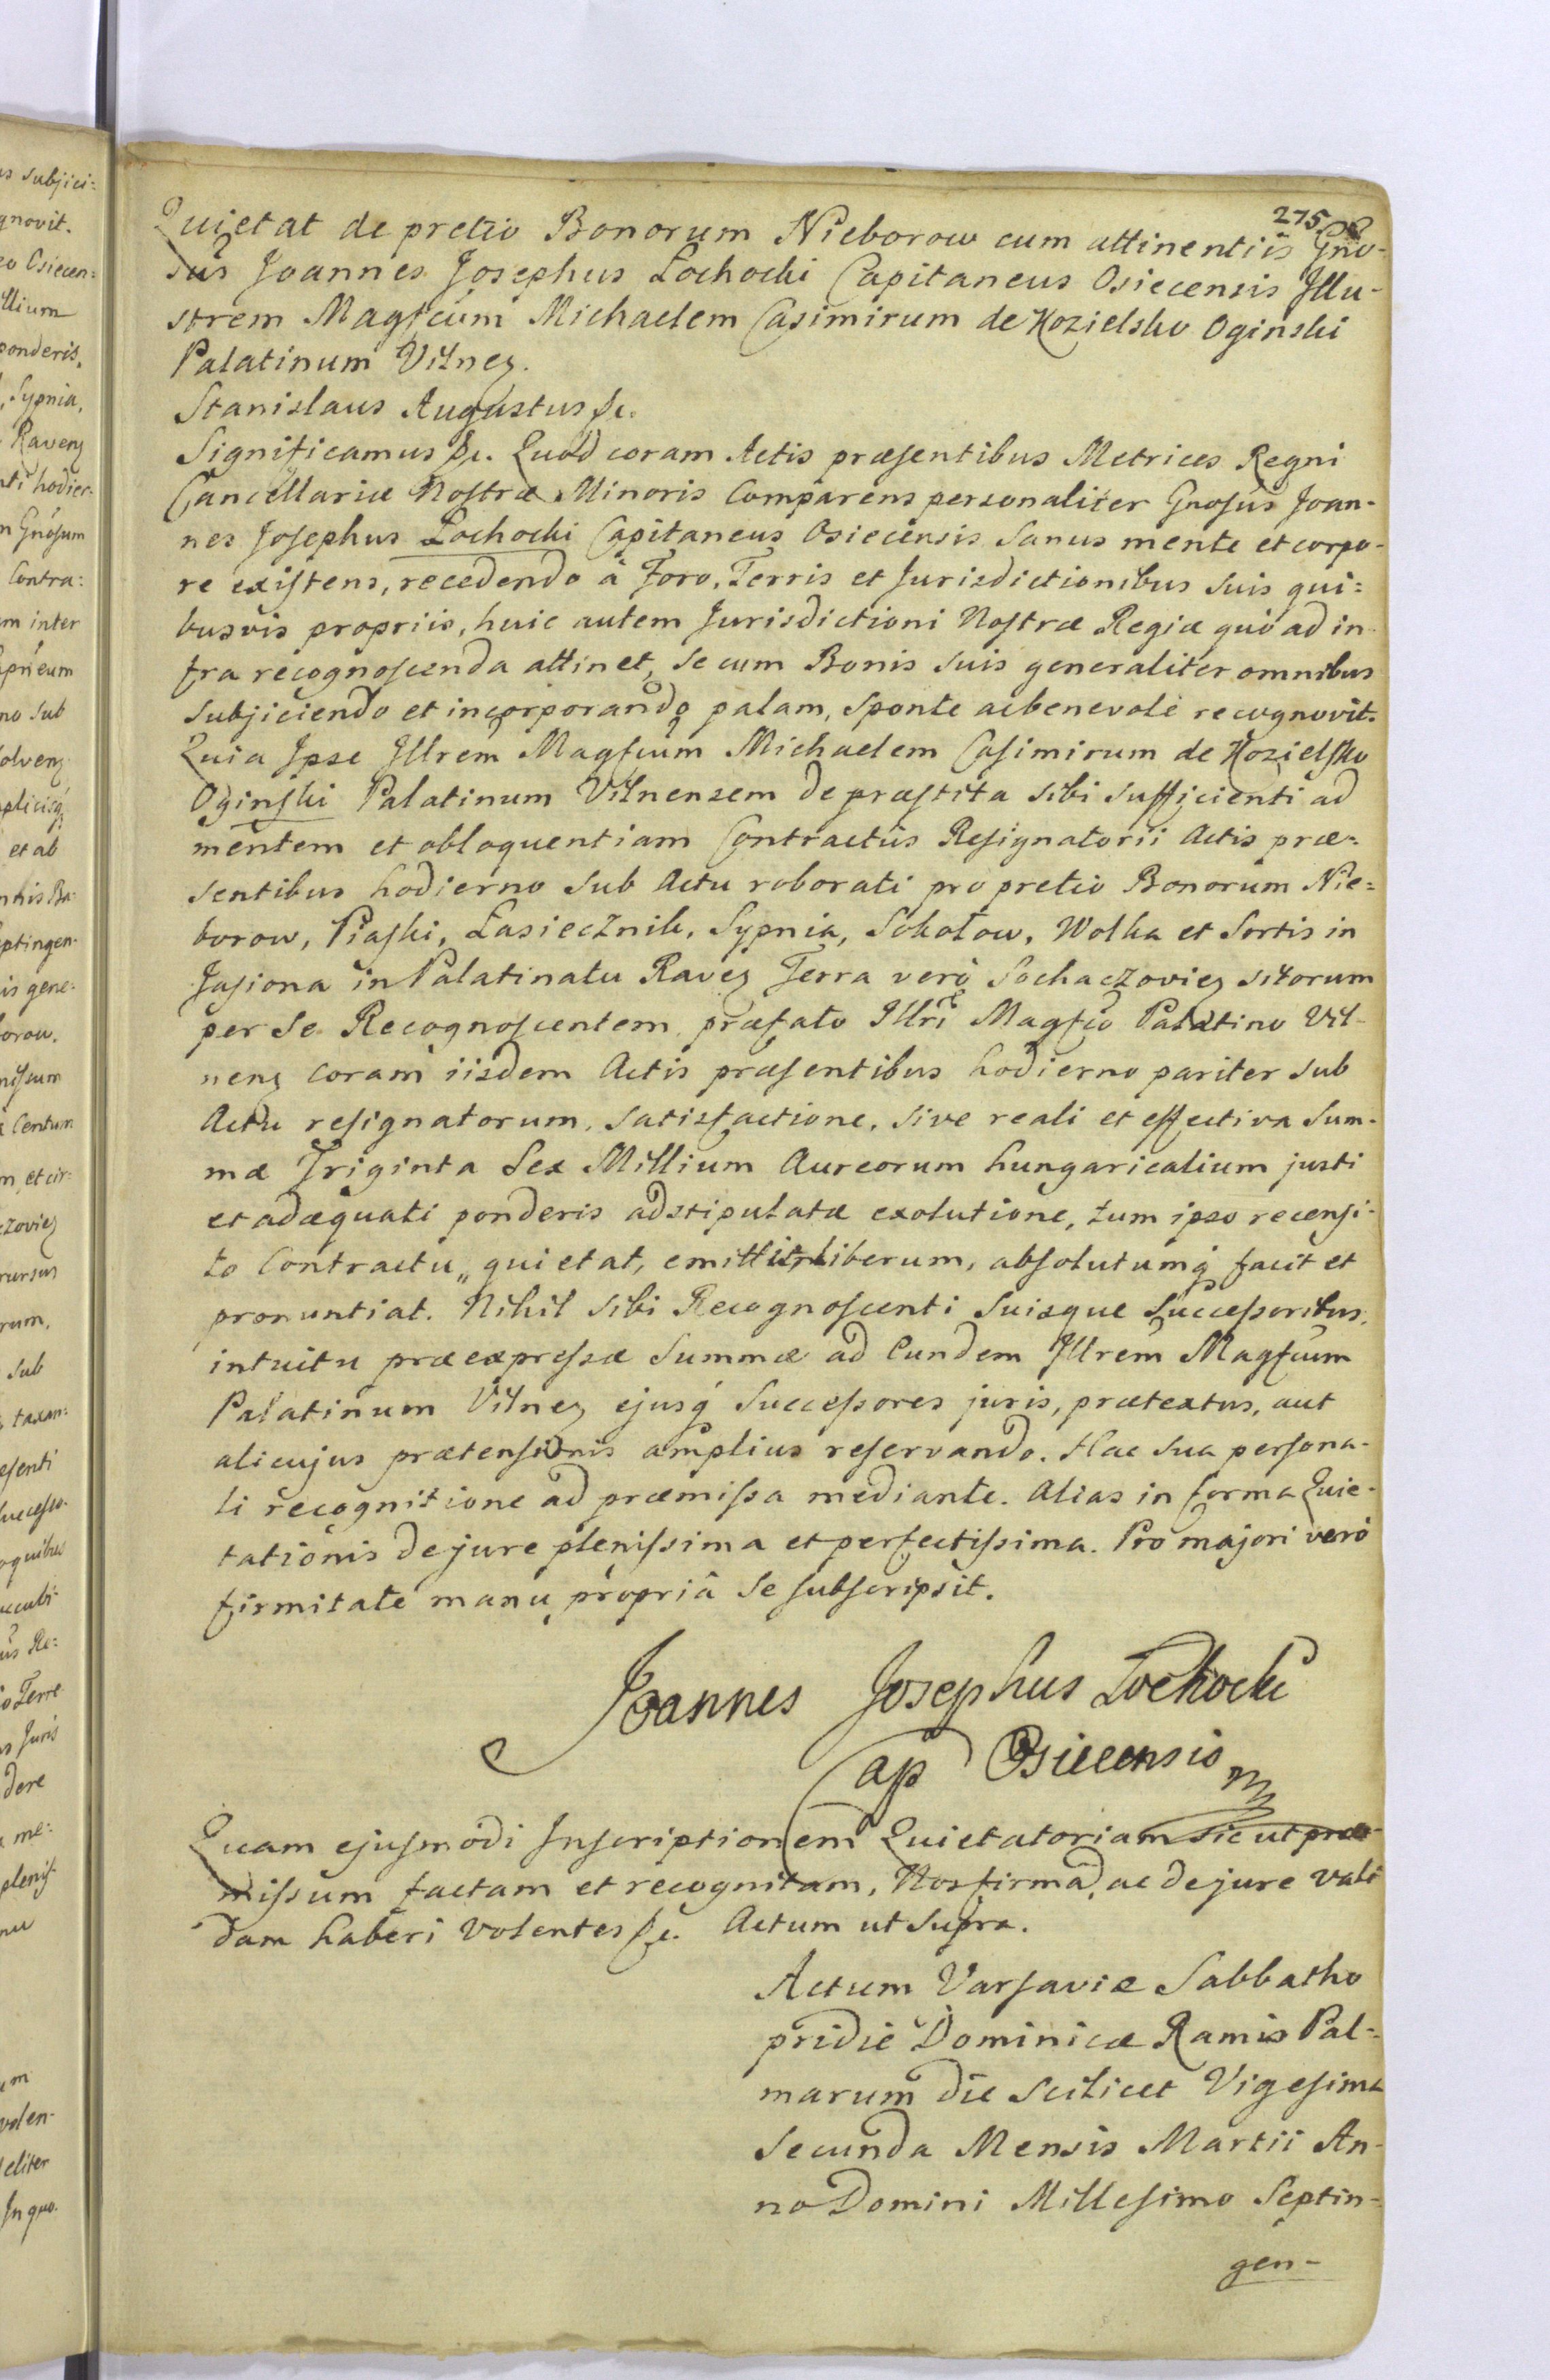 275
Quietat de pretio Bonorum Nieborow cum attinentiis Gno-
sus Joannes Josephus Łochocki Capitaneus Osiecensis Illu-
strem Magfcum Michaelem Casimirum de Kozielsko Oginski
Palatinum Vilneӡ.
Stanislaus Augustus &c.
Significamus &c. Quod coram Actis præsentibus Metrices Regni
Cancellariæ Nostræ Minoris Comparens personaliter Gnosus Joan-
nes Josephus Łochocki Capitaneus Osiecensis Sanus mente et corpo-
re existens, recedendo â Foro, Terris et Jurisdictionibus suis qui=
busvis propriis, huic autem Jurisdictioni Nostræ Regiæ quò ad in-
fra recognoscenda attinet, se cum Bonis suis generaliter omnibus
subjiciendo et incorporando palam, sponte acbenevole recognovit.
Quia Ipse Illrem Magfcum Michaelem Casimirum de Kozielsko
Oginski Palatinum Vilnensem de præstita sibi sufficienti ad
mentem et obloquentiam Contractûs Resignatorii Actis præ=
sentibus hodierno sub Actu roborati pro pretio Bonorum Nie=
borow, Piaski, Łasiecznik, Sypnia, Sokołow, Wolka et Sortis in
Jasiona in Palatinatu Raveӡ Terra verò Sochaczovieӡ sitorum
per se Recognoscentem præfato Illri Magfco Palatino Vil-
nenӡ coram iisdem Actis præsentibus hodierno pariter sub
Actu resignatorum, satisfactione, sive reali et effectiva Sum-
mæ Triginta Sex Millium Aureorum hungaricalium justi
et adæquati ponderis adstipulatæ exolutione, tum ipso recensi-
to Contractu,, quietat, emittit liberum, absolutumq́ facit et
pronuntiat. Nihil sibi Recognoscenti suisque Successoribus,
intuitu præexpressæ Summæ ad Eundem Illrem Magfcum
Palatinum Vilneӡ ejusq́ Successores juris, prætextus, aut
alicujus prætensionis amplius reservando. Hac sua persona-
li recognitione ad præmissa mediante. Alias in forma Quie-
tationis de jure plenissima et perfectissima. Pro majori verò
firmitate manu propriâ se subscripsit.
Joannes Josephus Łochocki
Cap Osiecensis
Quam ejusmodi Inscriptionem Quietatoriam sic ut præ-
missum factam et recognitam, Nos firmã, ac de jure vali
dam haberi volentes &c. Actum ut supra.
Actum Varsaviæ Sabbatho
pridie Dominicæ Ramis Pal=
marum die scilicet Vigesima
Secunda Mensis Martii An-
no Domini Millesimo Septin-
gen-